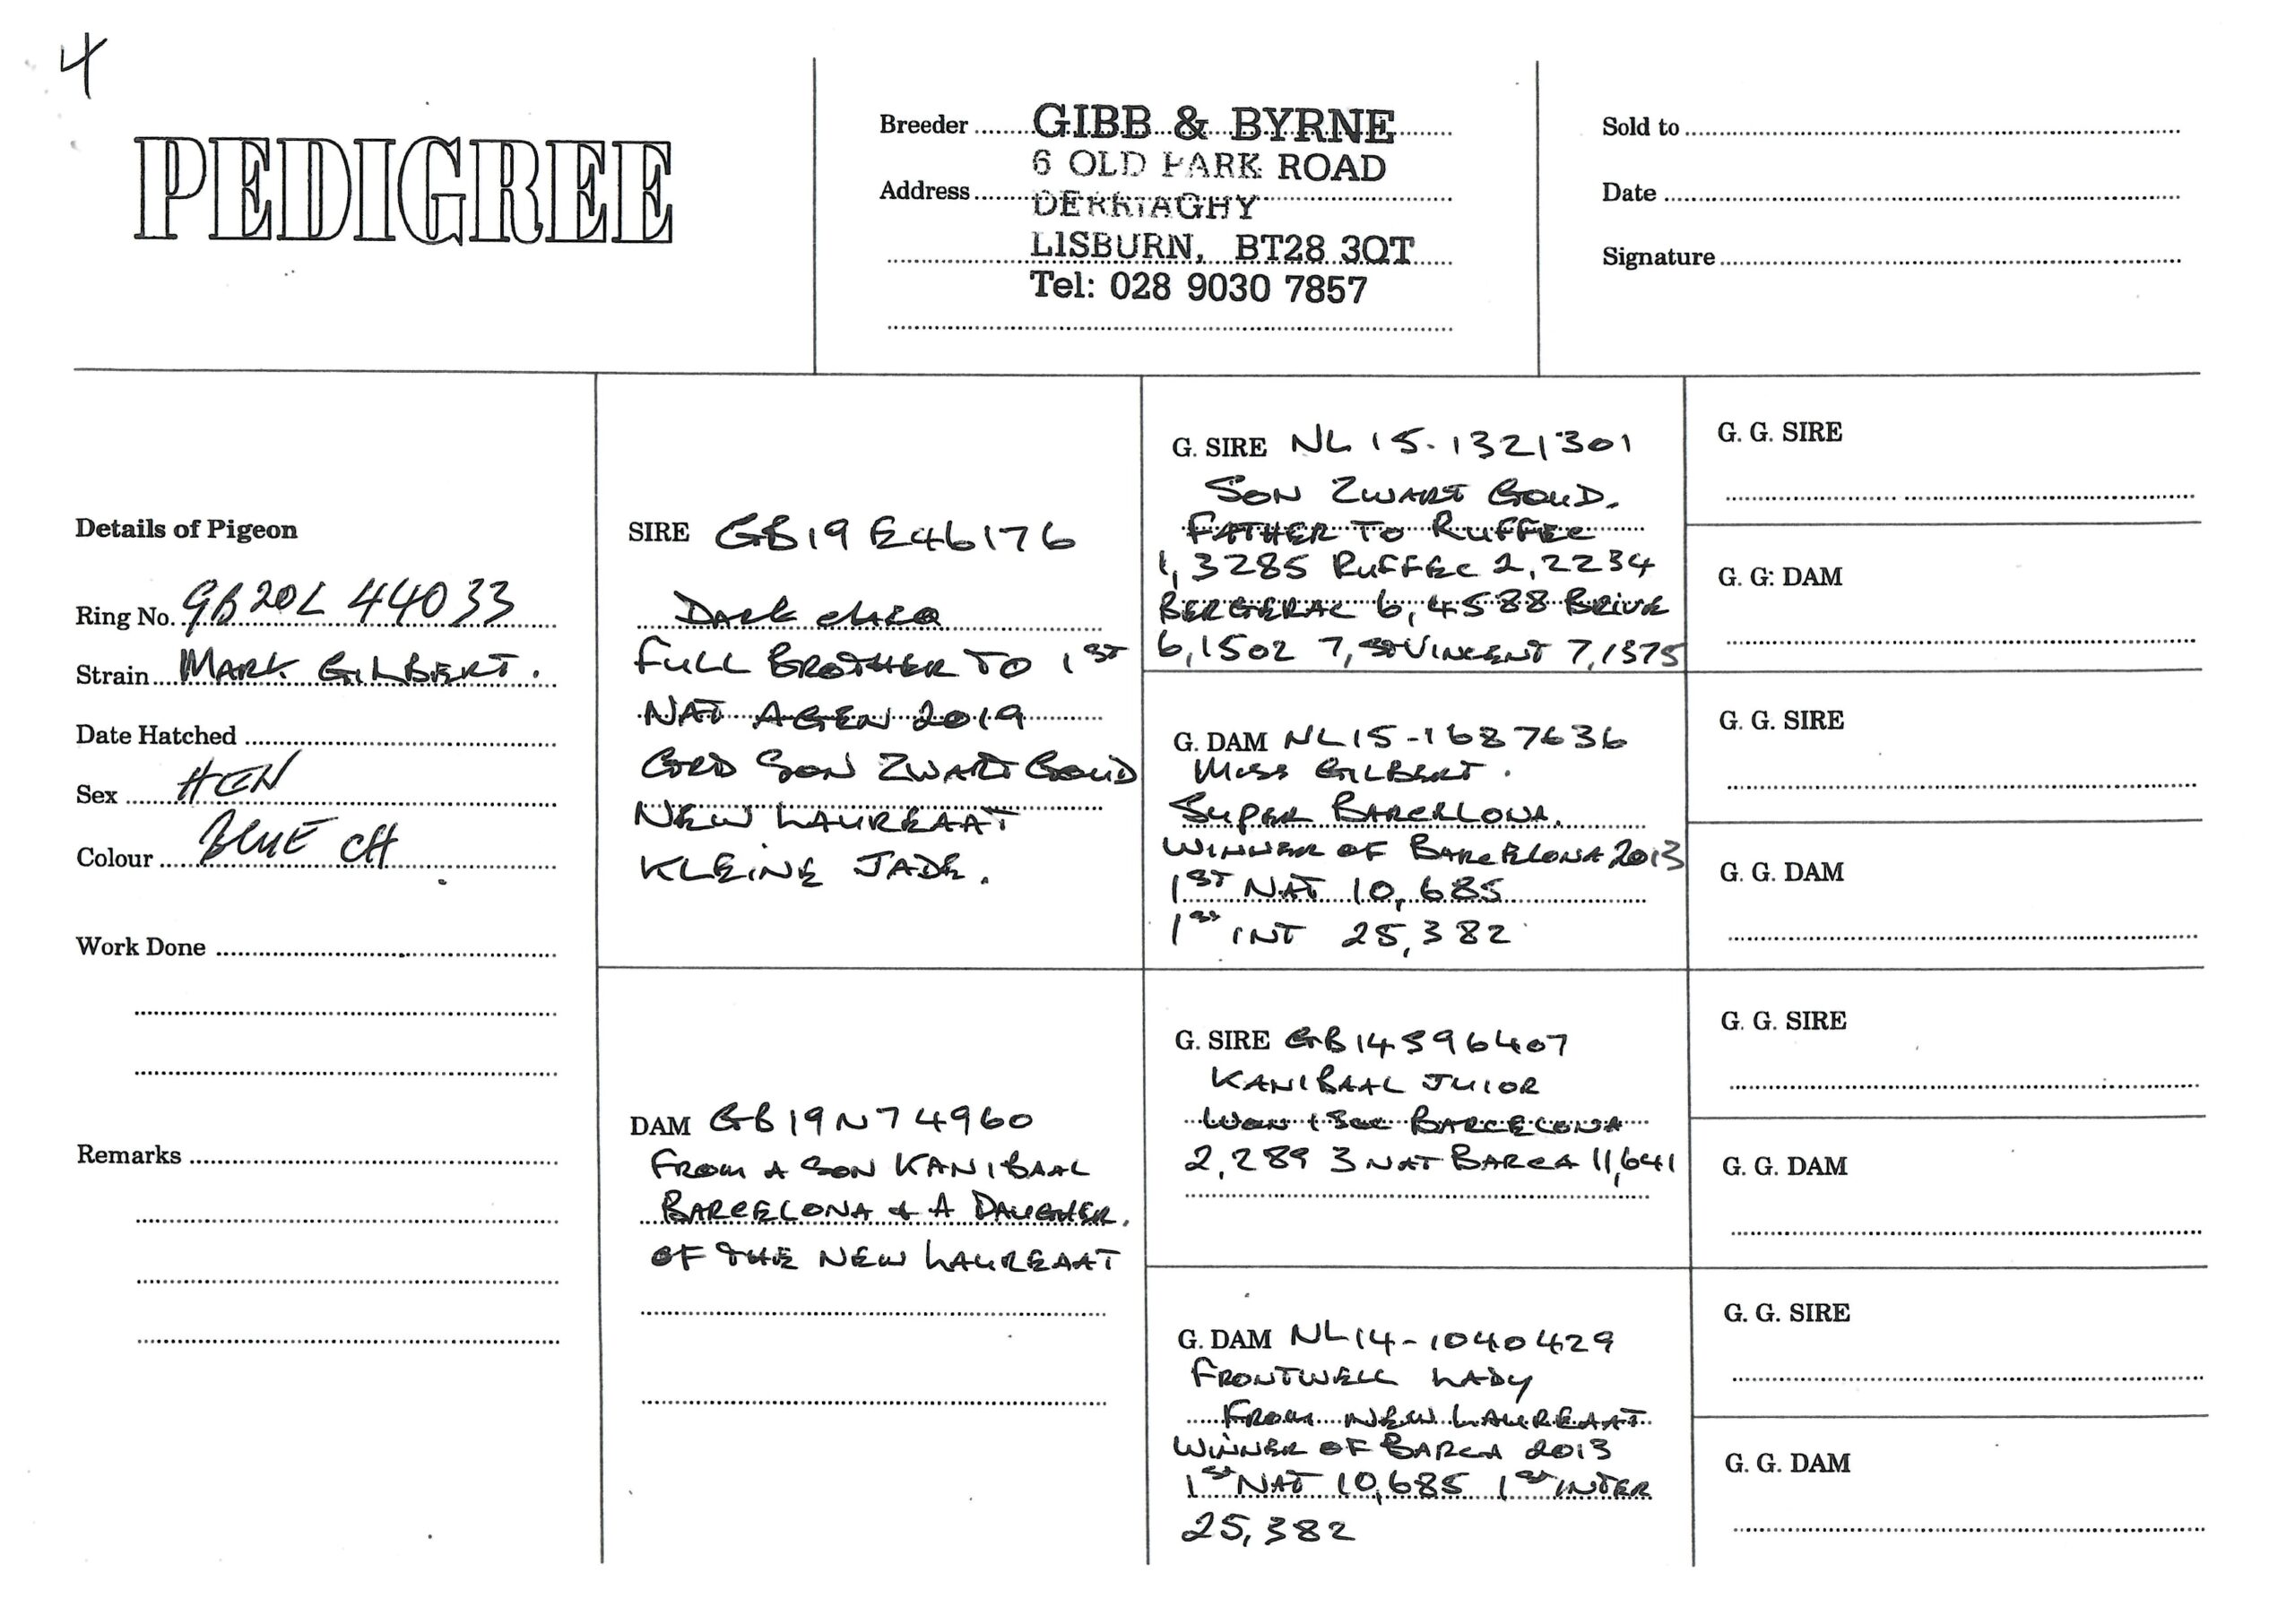 4
PEDIGREE
Breeder GIBB & BYRNE
6 OLD PARK ROAD
Address DERRIAGHY
LISBURN, BT28 3QT
Tel: 028 9030 7857
Sold to
Date
Signature
Details of Pigeon
Ring No. GB20L 44033
Strain MARK GILBERT.
Date Hatched
Sex HEN
Colour BLUE CH
Work Done
Remarks
SIRE GB19E46176
DARK CHEQ
FULL BROTHER TO 1ST
NAT AGEN 2019
GRD SON ZWART GOUD
NEW LAUREAAT
KLEINE JADE.
DAM GB19N74960
FROM A SON KANIBAAL
BARCELONA & A DAUGHER.
OF THE NEW LAUREAAT
G. SIRE NL15-1321301
SON ZWART GOUD.
FATHER TO RUFFEC
1,3285 RUFFEC 2,2234
BERGERAC 6,4588 BRIVE
6,1502 7, ST VINCENT 7,1375
G. DAM NL15-1687636
MISS GILBERT.
SUPER BARCELLONA.
WINNER OF BARCELONA 2013
1ST NAT 10,685
1ST INT 25,382
G. SIRE GB14S96407
KANIBAAL JUIOR
WON 1 SEC BARCELONA
2,289 3 NAT BARCA 11,641
G. DAM NL14-1040429
FRONTWELL LADY
FROM NEW LAUREAAT
WINNER OF BARCA 2013
1ST NAT 10,685 1ST INTER
25,382
G. G. SIRE
G. G: DAM
G. G. SIRE
G. G. DAM
G. G. SIRE
G. G. DAM
G. G. SIRE
G. G. DAM